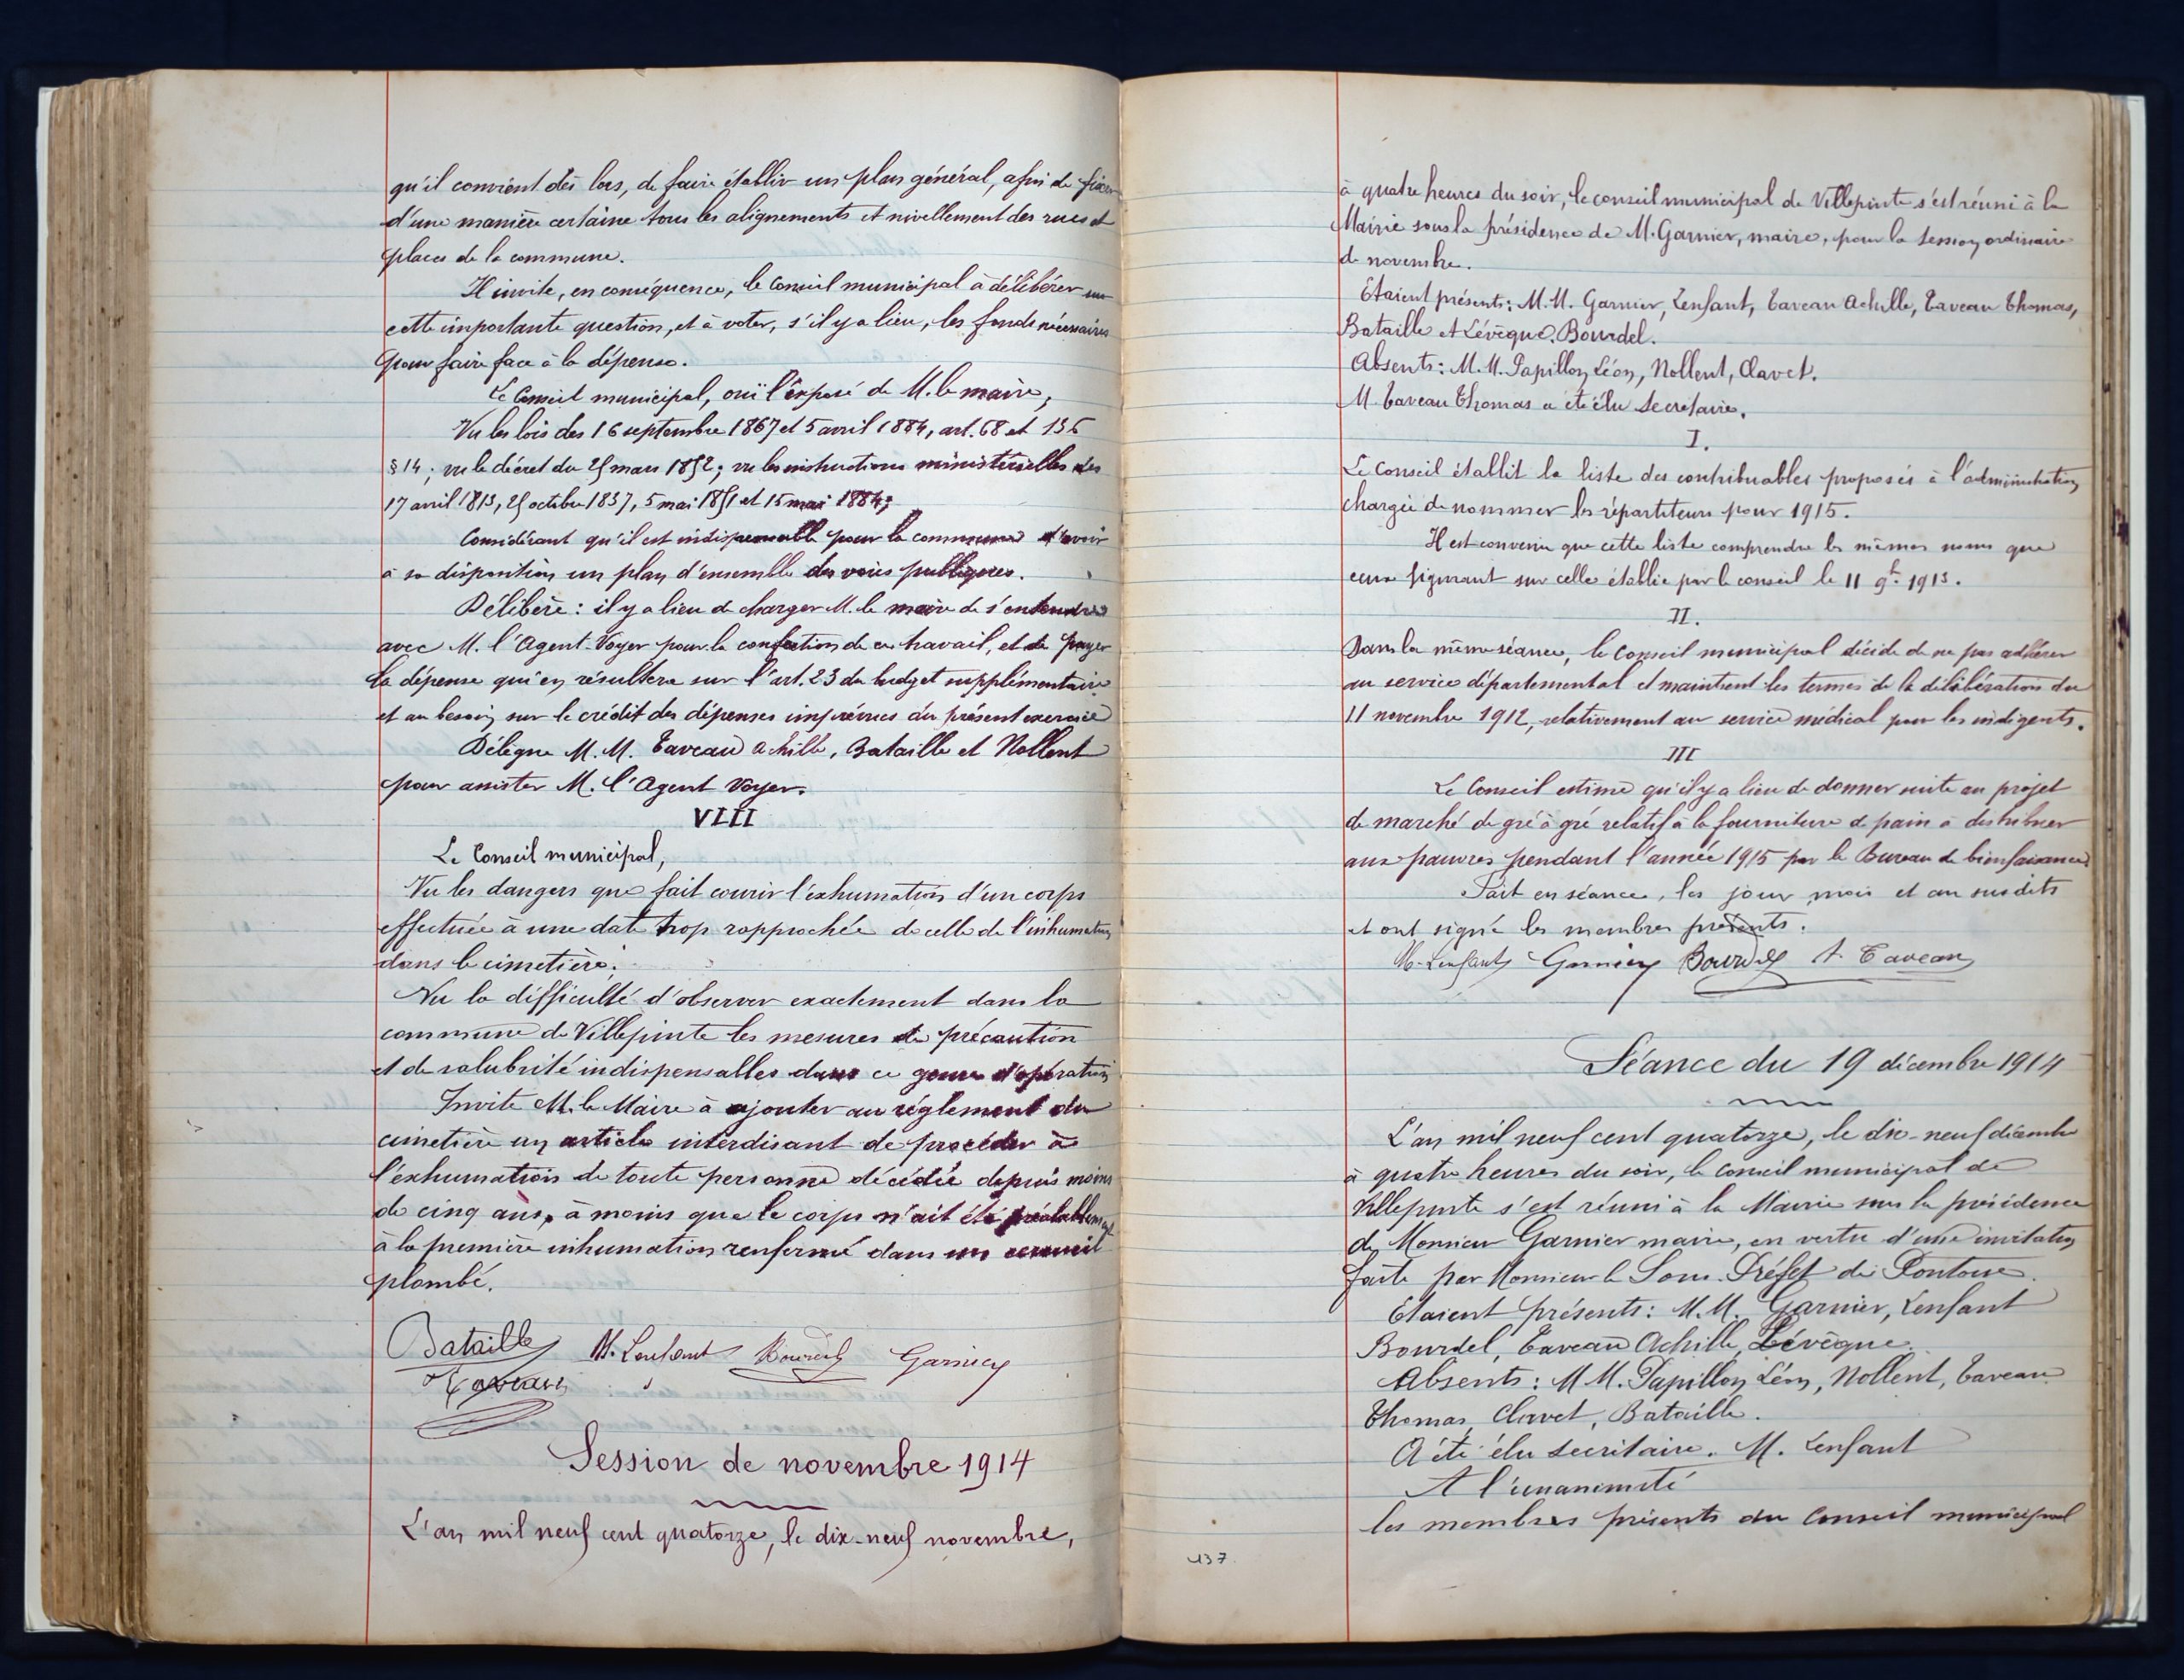 qu'il convient dès lors, de faire établir un plan général, afin de fixer
d'une manière certaine tous les alignements et nivellement des rues et
places de la commune.
Il invite, en conséquence, le Conseil municipal à délibérer sur
cette importante question, et à voter, s'il y a lieu, les fonds nécessaires
pour faire face à la dépense.
Le Conseil municipal, ouï l'exposé de M. le maire,
Vu les lois des 16 septembre 1867 et 5 avril 1884, art. 68 et 136
§ 14; vu le décret du 25 mars 1852; vu les instructions ministérielles des
17 avril 1813, 25 octobre 1837, 5 mai 1851 et 15 mai 1884;
Considérant qu'il est indispensable pour la commune d'avoir
à sa disposition un plan d'ensemble des voies publiques.
Délibère: il y a lieu de charger M. le maire de s'entendre
avec M. l'Agent-Voyer pour la confection de ce travail, et de payer
la dépense qui en résultera sur l'art. 23 du budget supplémentaire
et au besoin sur le crédit des dépenses imprévues du présent exercice
Délègue M. M. Taveau Achille, Bataille et Nollent
pour assister M. l'Agent Voyer.
VIII
Le Conseil municipal,
Vu les dangers que fait courir l'exhumation d'un corps
effectuée à une date trop rapprochée de celle de l'inhumation
dans le cimetière;
Vu la difficulté d'observer exactement dans la
commune de Villepinte les mesures de précaution
et de salubrité indispensables dans ce genre d'opération
Invite M. le Maire à ajouter au règlement du
cimetière un article interdisant de procéder à
l'exhumation de toute personne décédée depuis moins
de cinq ans, à moins que le corps n'ait été préalablement
à la première inhumation renfermé dans un cercueil
plombé.
Bataille M. Lenfant Bourdel Garnier
Taveau
Session de novembre 1914
L'an mil neuf cent quatorze, le dix-neuf novembre,
à quatre heures du soir, le conseil municipal de Villepinte s'est réuni à la
Mairie sous la présidence de M. Garnier, maire, pour la session ordinaire
de novembre.
Etaient présents: M. M. Garnier, Lenfant, Taveau Achille, Taveau Thomas,
Bataille et Lévêque. Bourdel.
Absents: M. M. Papillon Léon, Nollent, Clavet.
M. Taveau Thomas a été élu Secrétaire.
I.
Le Conseil établit la liste des contribuables proposés à l'administration
chargée de nommer les répartiteurs pour 1915.
Il est convenu que cette liste comprendra les mêmes noms que
ceux figurant sur celle établie par le conseil le 11 9bre 1913.
II.
Dans la même séance, le Conseil municipal décide de ne pas adhérer
au service départemental et maintient les termes de la délibération du
11 novembre 1912, relativement au service médical pour les indigents.
III
Le Conseil estime qu'il y a lieu de donner suite au projet
de marché de gré à gré relatif à la fourniture de pain à distribuer
aux pauvres pendant l'année 1915 par le Bureau de bienfaisance
Fait en séance, les jour, mois et an susdits
et ont signé les membres présents.
M. Lenfant Garnier Bourdel A. Taveau
Séance du 19 décembre 1914
L'an mil neuf cent quatorze, le dix-neuf décembre
à quatre heures du soir, le Conseil municipal de
Villepinte s'est réuni à la Mairie sous la présidence
de Monsieur Garnier maire, en vertu d'une invitation
faite par Monsieur le Sous-Préfet de Pontoise.
Etaient présents: M. M. Garnier, Lenfant
Bourdel, Taveau Achille, Lévêque.
Absents: M M. Papillon Léon, Nollent, Taveau
Thomas, Clavet, Bataille.
A été élu secrétaire. M. Lenfant
A l'unanimité
les membres présents du Conseil municipal
137